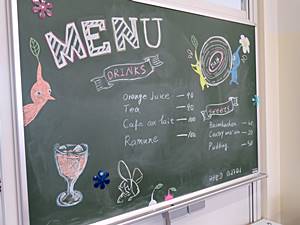 MENU
DRINKS
Orange Juice — 90
Tea — 90
Cafe au lait — 100
Ramune — 100
SWEETS
Baumkuchen
Pudding